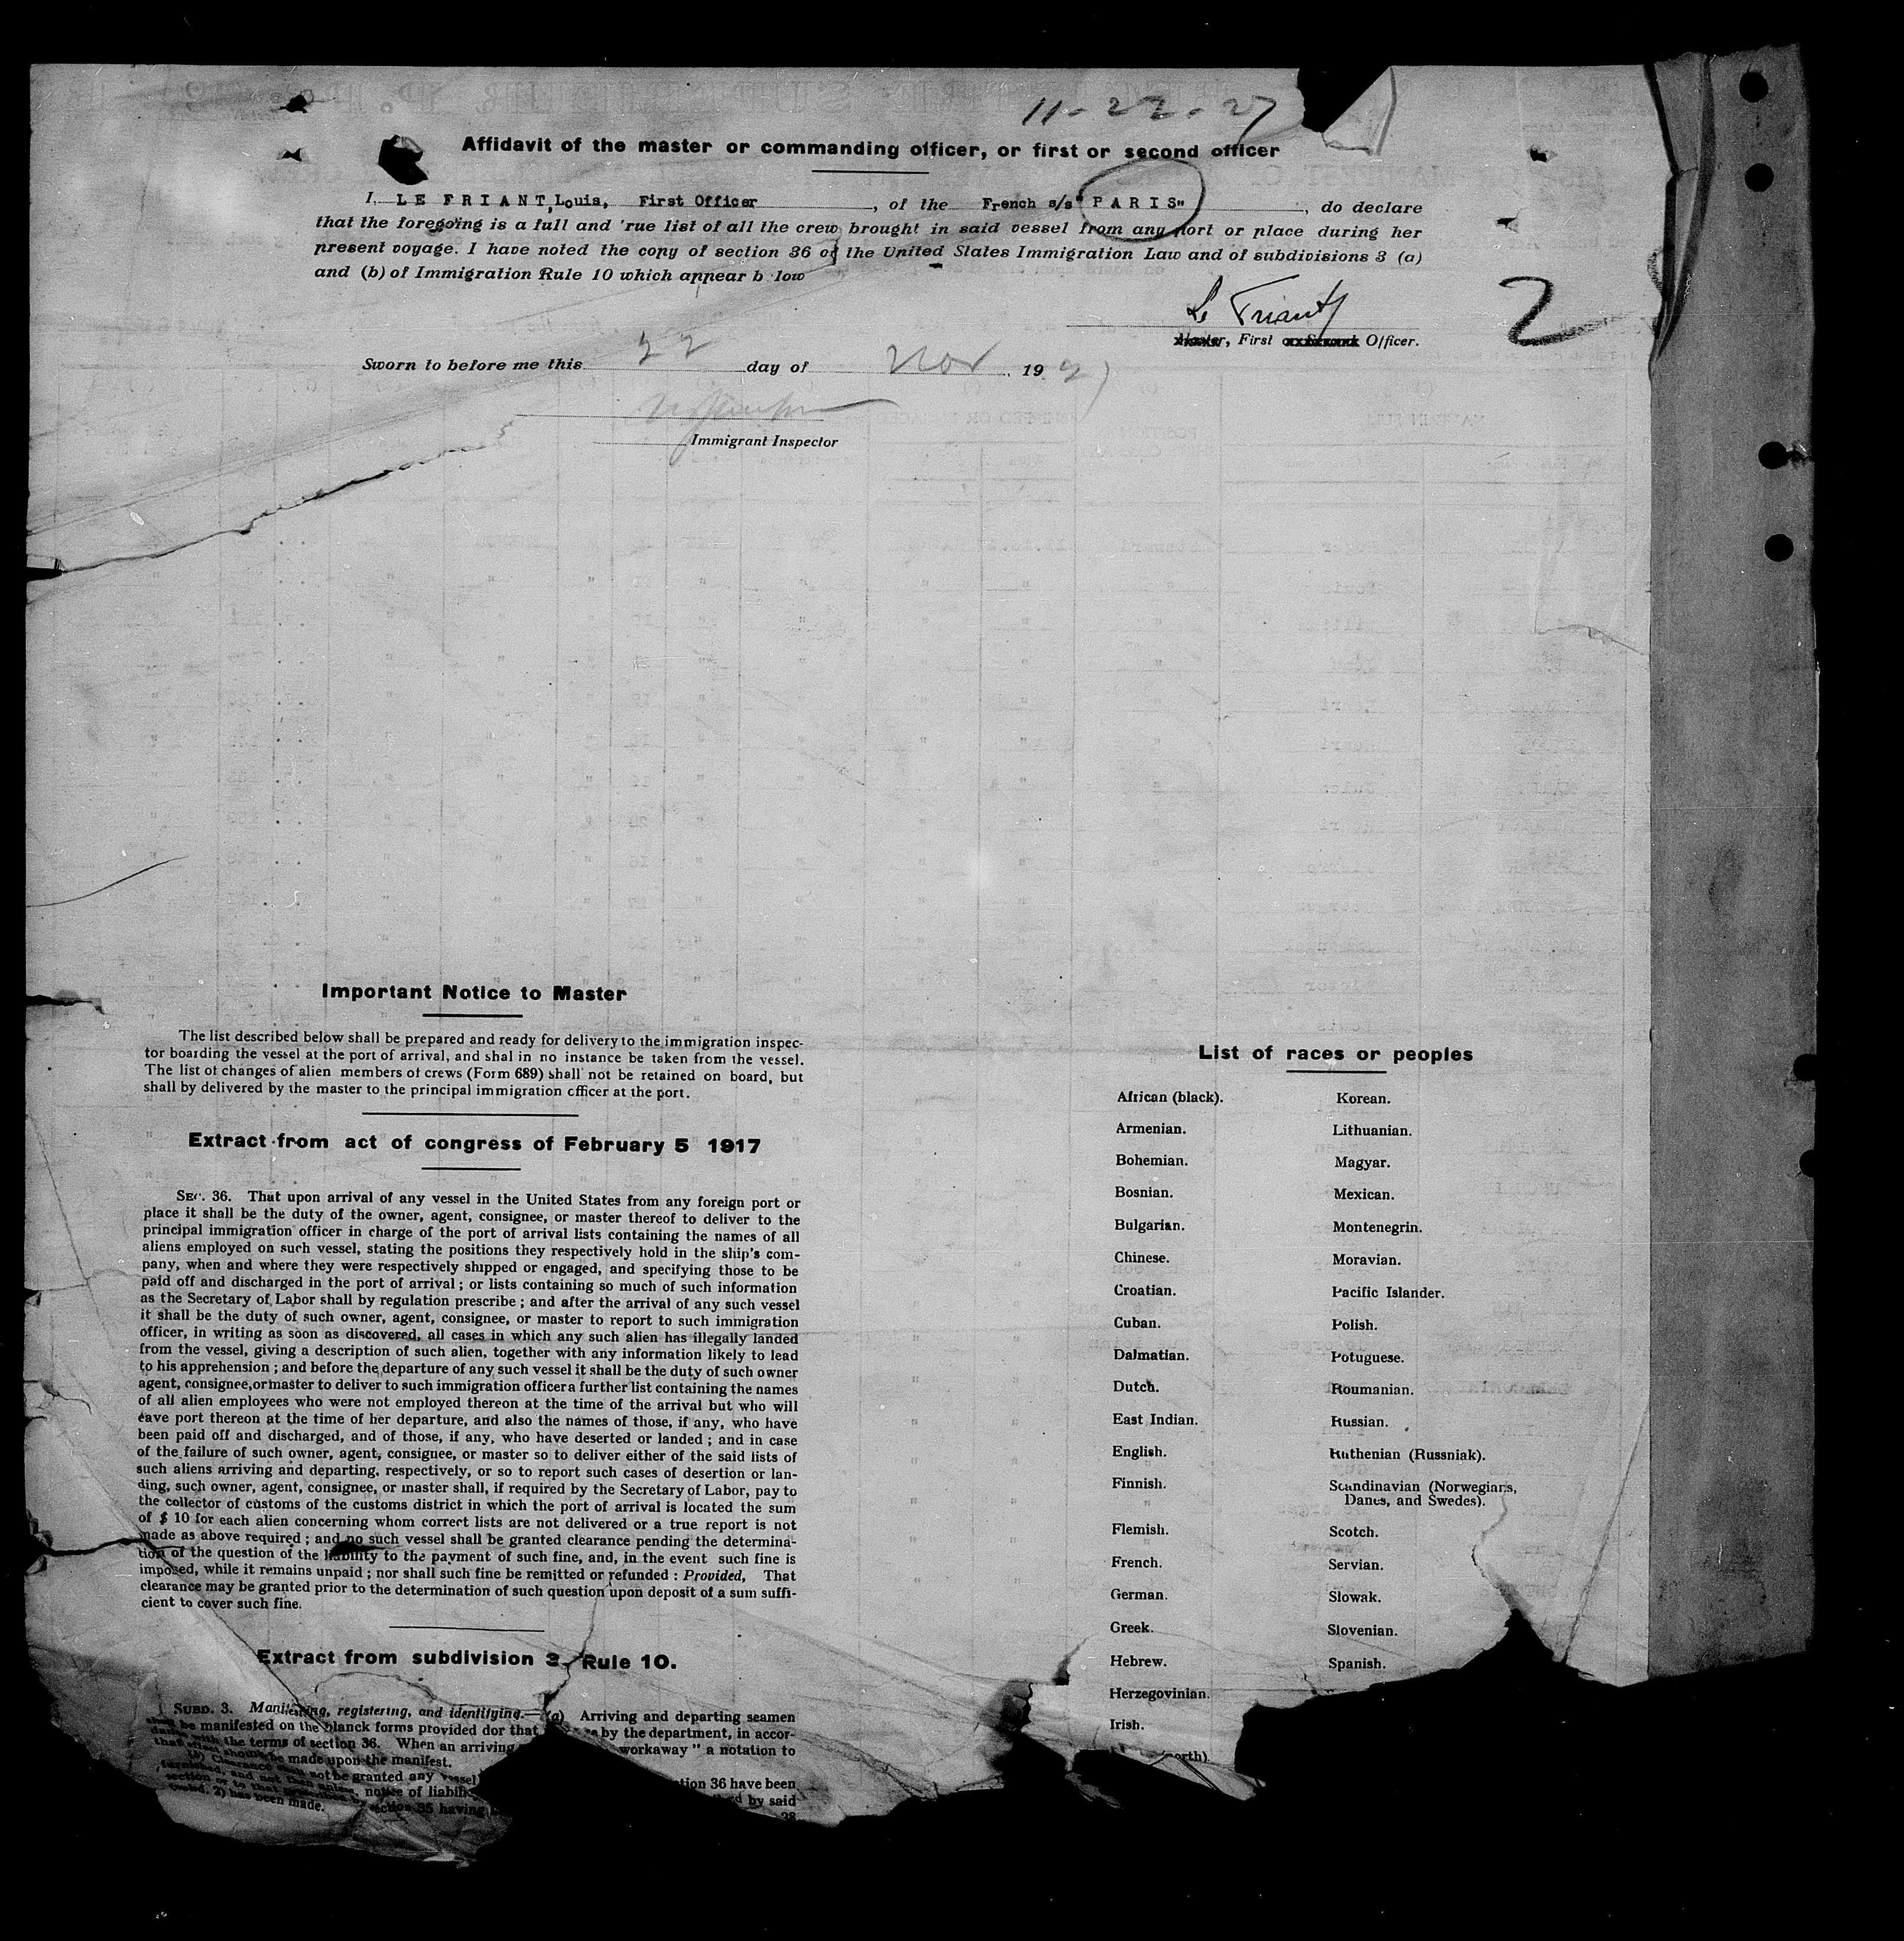 11-22-27
Affidavit of the master or commanding officer, or first or second officer
I, LE FRIANT, Louis, First Officer, of the French s/s "PARIS", do declare
that the foregoing is a full and 'rue list of all the crew brought in said vessel from any port or place during her
present voyage. I have noted the copy of section 36 of the United States Immigration Law and of subdivisions 3 (a)
and (b) of Immigration Rule 10 which appear b low
2
Le Friant
Master, First or Second Officer.
Sworn to before me this 22 day of Nov 1927
Immigrant Inspector
Important Notice to Master
The list described below shall be prepared and ready for delivery to the immigration inspec-
tor boarding the vessel at the port of arrival, and shal in no instance be taken from the vessel.
The list of changes of alien members of crews (Form 689) shall not be retained on board, but
shall by delivered by the master to the principal immigration officer at the port.
Extract from act of congress of February 5 1917
SEC. 36. That upon arrival of any vessel in the United States from any foreign port or
place it shall be the duty of the owner, agent, consignee, or master thereof to deliver to the
principal immigration officer in charge of the port of arrival lists containing the names of all
aliens employed on such vessel, stating the positions they respectively hold in the ship's com-
pany, when and where they were respectively shipped or engaged, and specifying those to be
paid off and discharged in the port of arrival ; or lists containing so much of such information
as the Secretary of Labor shall by regulation prescribe ; and after the arrival of any such vessel
it shall be the duty of such owner, agent, consignee, or master to report to such immigration
officer, in writing as soon as discovered, all cases in which any such alien has illegally landed
from the vessel, giving a description of such alien, together with any information likely to lead
to his apprehension ; and before the departure of any such vessel it shall be the duty of such owner
agent, consignee, or master to deliver to such immigration officer a further list containing the names
of all alien employees who were not employed thereon at the time of the arrival but who will
eave port thereon at the time of her departure, and also the names of those, if any, who have
been paid off and discharged, and of those, if any, who have deserted or landed ; and in case
of the failure of such owner, agent, consignee, or master so to deliver either of the said lists of
such aliens arriving and departing, respectively, or so to report such cases of desertion or lan-
ding, such owner, agent, consignee, or master shall, if required by the Secretary of Labor, pay to
the collector of customs of the customs district in which the port of arrival is located the sum
of $ 10 for each alien concerning whom correct lists are not delivered or a true report is not
made as above required ; and no such vessel shall be granted clearance pending the determina-
tion of the question of the liability to the payment of such fine, and, in the event such fine is
imposed, while it remains unpaid ; nor shall such fine be remitted or refunded : Provided, That
clearance may be granted prior to the determination of such question upon deposit of a sum suffi-
cient to cover such fine.
Extract from subdivision 3 Rule 10.
SUBD. 3. Manifesting, registering, and identifying.—(a) Arriving and departing seamen
shall be manifested on the blanck forms provided dor that by the department, in accor-
dance with the terms of section 36. When an arriving workaway " a notation to
that effect should be made upon the manifest.
(b) Clearance shall not be granted any vessel tion 36 have been
furnished, and not then unless, notice of liabili by said
section or to that prescribed by section 35 having 28
(subd. 2) has been made.
List of races or peoples
African (black). Korean.
Armenian. Lithuanian.
Bohemian. Magyar.
Bosnian. Mexican.
Bulgarian. Montenegrin.
Chinese. Moravian.
Croatian. Pacific Islander.
Cuban. Polish.
Dalmatian. Potuguese.
Dutch. Roumanian.
East Indian. Russian.
English. Ruthenian (Russniak).
Finnish. Scandinavian (Norwegians,
Danes, and Swedes).
Flemish. Scotch.
French. Servian.
German. Slowak.
Greek. Slovenian.
Hebrew. Spanish.
Herzegovinian.
Irish.
orth)